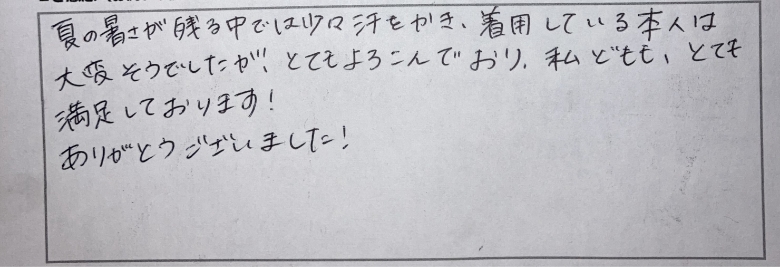 夏の暑さが残る中では少々汗をかき、着用している本人は
大変そうでしたが、とてもよろこんでおり、私どもも、とても
満足しております！
ありがとうございました！